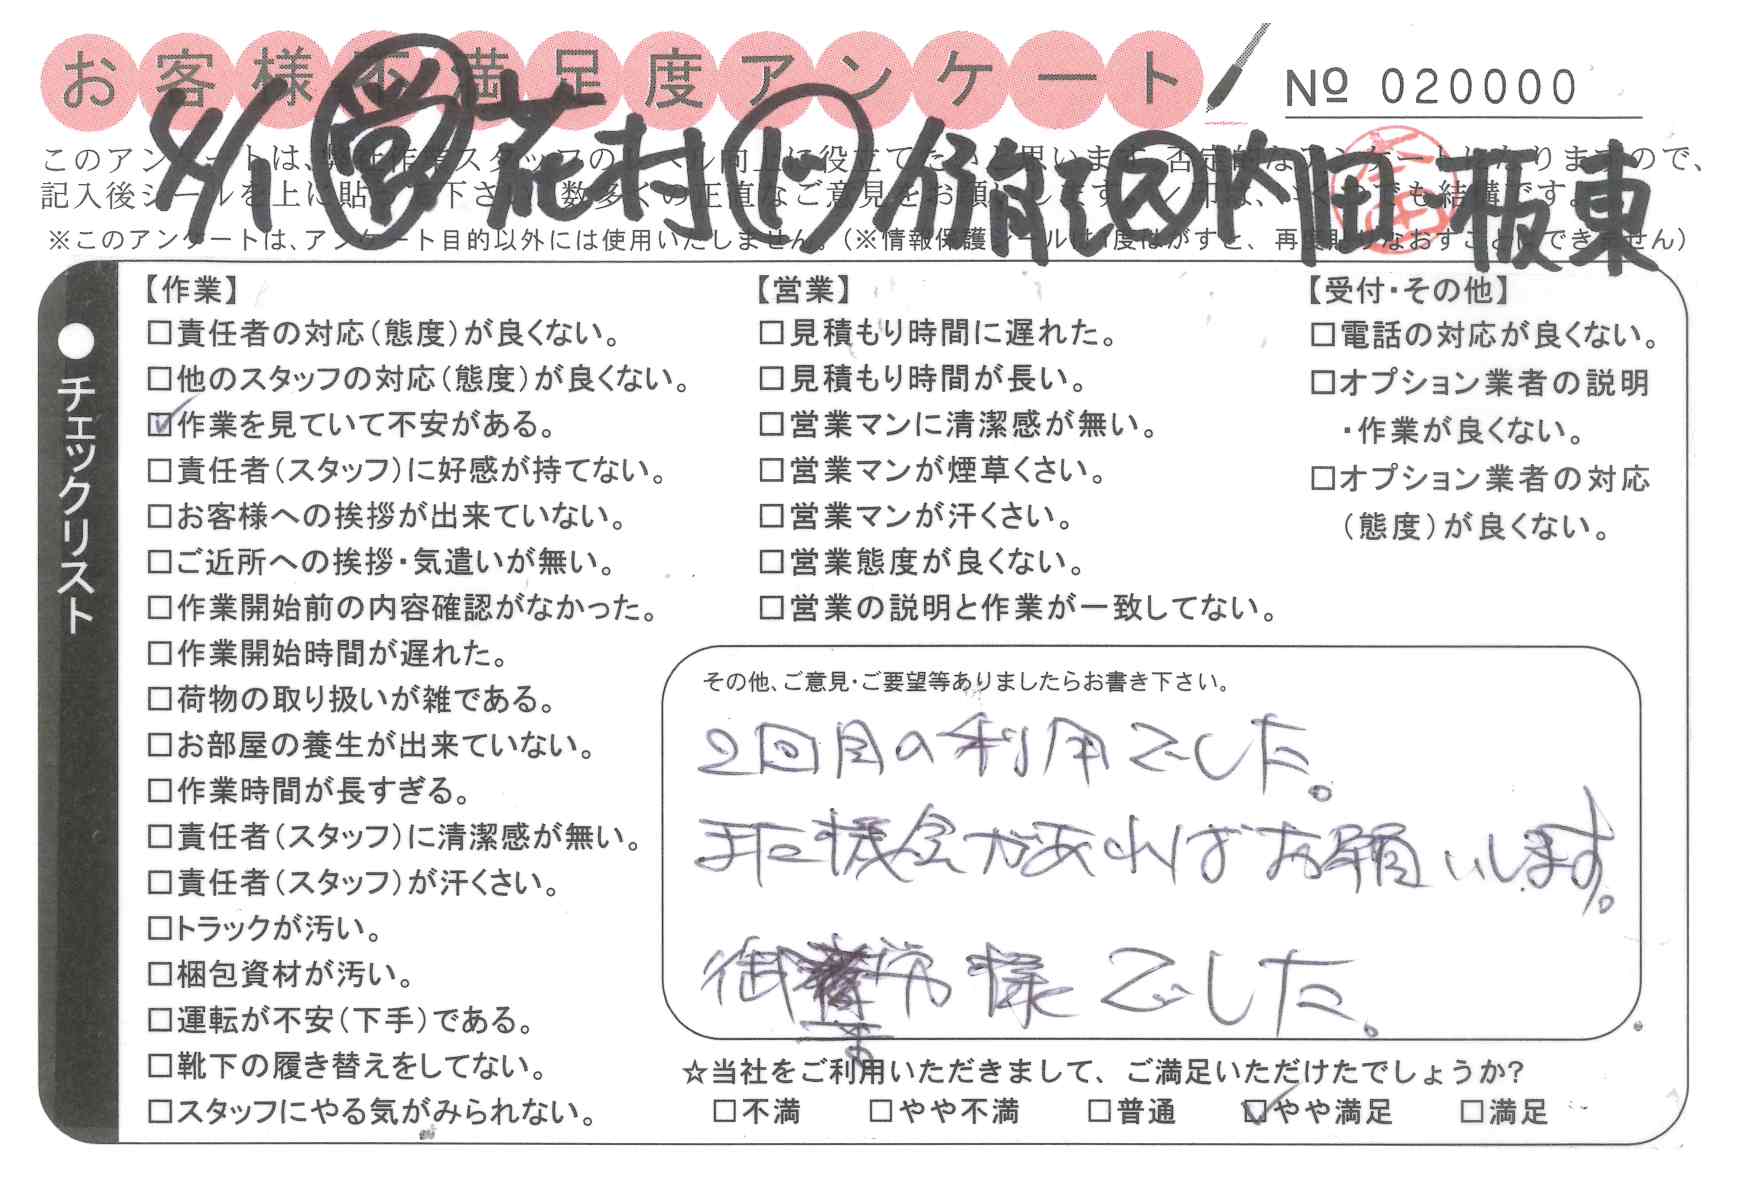 お客様不満足度アンケート
№ 020000
8/1 営 花村 リ 須 ス 内田・板東
このアンケートは、弊社作業スタッフのレベル向上に役立てたいと思います。否定的なアンケートになりますので、
記入後シールを上に貼って下さい。数多くの正直なご意見をお願いします。レ印は、いくつでも結構です。
※このアンケートは、アンケート目的以外には使用いたしません。(※情報保護シールは1度はがすと、再度貼りなおすことはできません)
●チェックリスト
【作業】
□責任者の対応(態度)が良くない。
□他のスタッフの対応(態度)が良くない。
☑作業を見ていて不安がある。
□責任者(スタッフ)に好感が持てない。
□お客様への挨拶が出来ていない。
□ご近所への挨拶・気遣いが無い。
□作業開始前の内容確認がなかった。
□作業開始時間が遅れた。
□荷物の取り扱いが雑である。
□お部屋の養生が出来ていない。
□作業時間が長すぎる。
□責任者(スタッフ)に清潔感が無い。
□責任者(スタッフ)が汗くさい。
□トラックが汚い。
□梱包資材が汚い。
□運転が不安(下手)である。
□靴下の履き替えをしてない。
□スタッフにやる気がみられない。
【営業】
□見積もり時間に遅れた。
□見積もり時間が長い。
□営業マンに清潔感が無い。
□営業マンが煙草くさい。
□営業マンが汗くさい。
□営業態度が良くない。
□営業の説明と作業が一致してない。
【受付・その他】
□電話の対応が良くない。
□オプション業者の説明
・作業が良くない。
□オプション業者の対応
(態度)が良くない。
その他、ご意見・ご要望等ありましたらお書き下さい。
2回目の利用でした。
また機会があればお願いします。
御労様でした。
☆当社をご利用いただきまして、ご満足いただけたでしょうか?
□不満 □やや不満 □普通 ☑やや満足 □満足